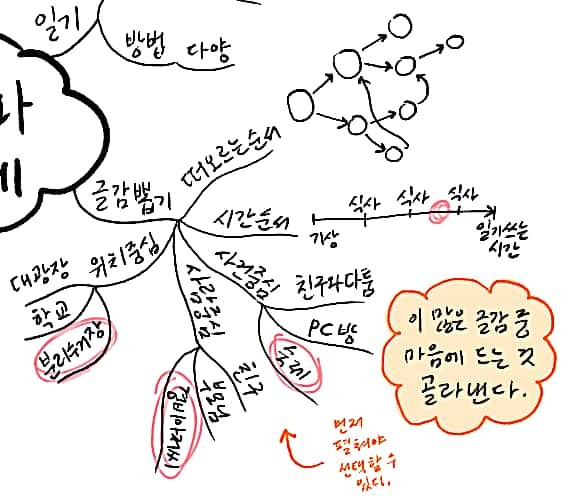 일기
방법 다양
글감뽑기
떠오르는순서
시간순서
기상
식사
식사
식사
일기쓰는
시간
위치중심
대광장
학교
분리수거장
사람중심
부모님
친구
사건중심
친구와다툼
PC방
숙제
이 많은 글감 중
마음에 드는 것
골라낸다.
먼저
펼쳐야
선택할 수
있다.